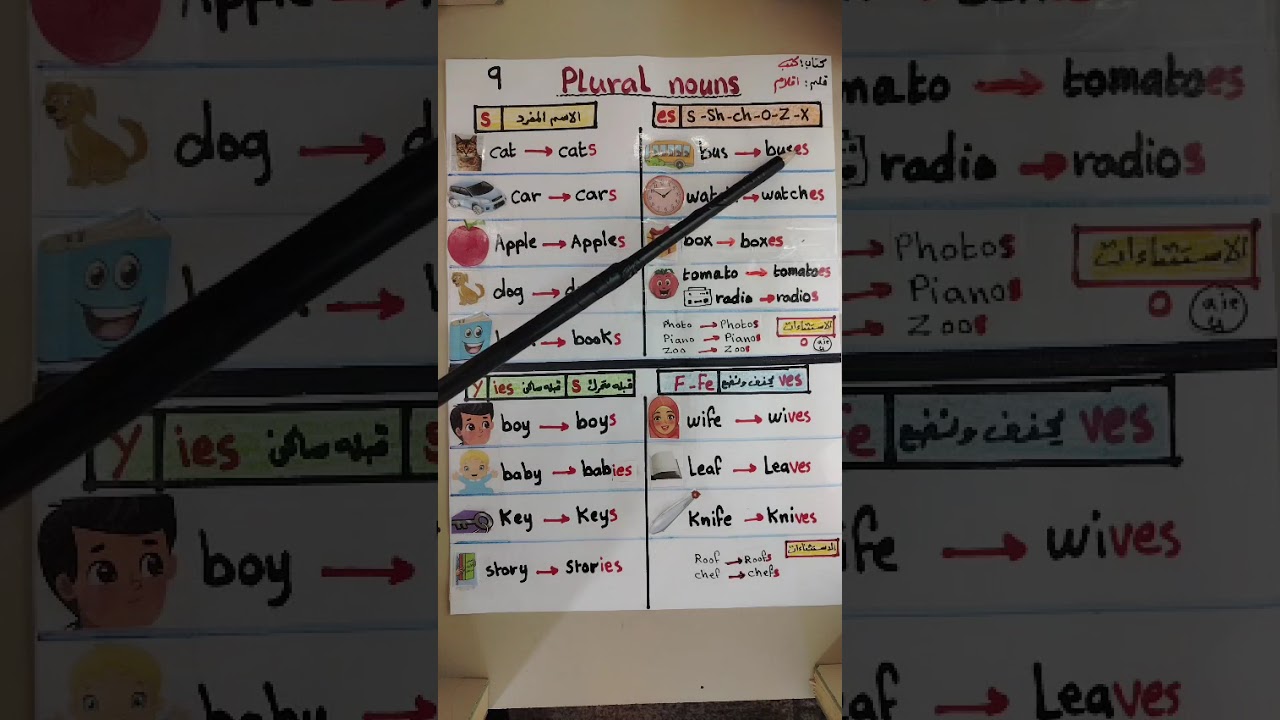 9
Plural nouns
كتاب: كتب
قلم: اقلام
S الاسم المفرد
cat → cats
car → cars
Apple → Apples
dog →
→ books
es S-Sh-ch-O-Z-X
bus → buses
→ watches
box → boxes
tomato → tomatoes
radio → radios
Photo → Photos
Piano → Pianos
Zoo → Zoos
الاستثناءات
O
y ies قبله ساكن S قبله متحرك
boy → boys
baby → babies
Key → Keys
story → Stories
F-Fe يحذف ونضع ves
wife → wives
Leaf → Leaves
Knife → Knives
الاستثناءات
Roof → Roofs
chef → chefs